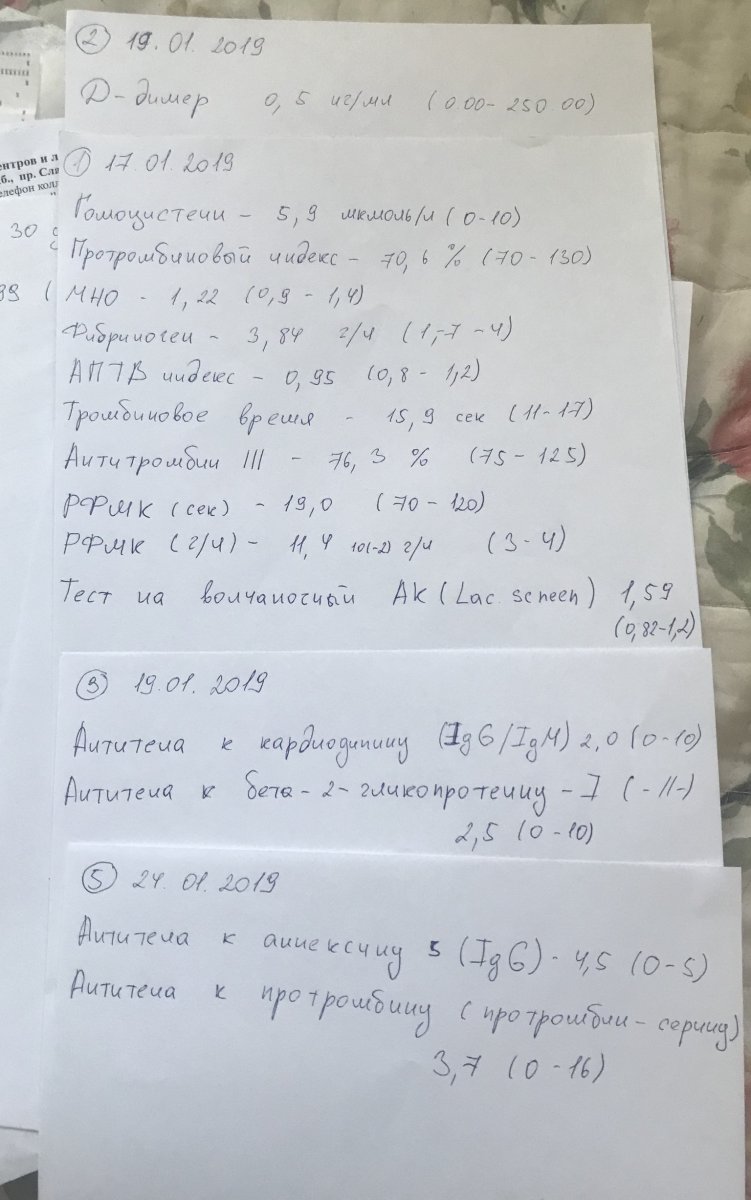 ② 19.01.2019
Д-димер 0,5 нг/мл (0.00-250.00)
ентров и л
б., пр. Сла
елефон колл
30
99 (
① 17.01.2019
Гомоцистеин - 5,9 мкмоль/л (0-10)
Протромбиновый индекс - 70,6 % (70-130)
МНО - 1,22 (0,9-1,4)
Фибриноген - 3,84 г/л (1,-7-4)
АПТВ индекс - 0,95 (0,8-1,2)
Тромбиновое время - 15,9 сек (11-17)
Антитромбин III - 76,3 % (75-125)
РФМК (сек) - 19,0 (70-120)
РФМК (г/л) - 11,4 10(-2) г/л (3-4)
Тест на волчаночный АК (Lac. screen) 1,59
(0,82-1,2)
③ 19.01.2019
Антитела к кардиолипину (IgG/IgM) 2,0 (0-10)
Антитела к бета-2-гликопротеину-I (-//-)
2,5 (0-10)
⑤ 24.01.2019
Антитела к аннексину 5 (IgG) - 4,5 (0-5)
Антитела к протромбину (протромбин-серину)
3,7 (0-16)